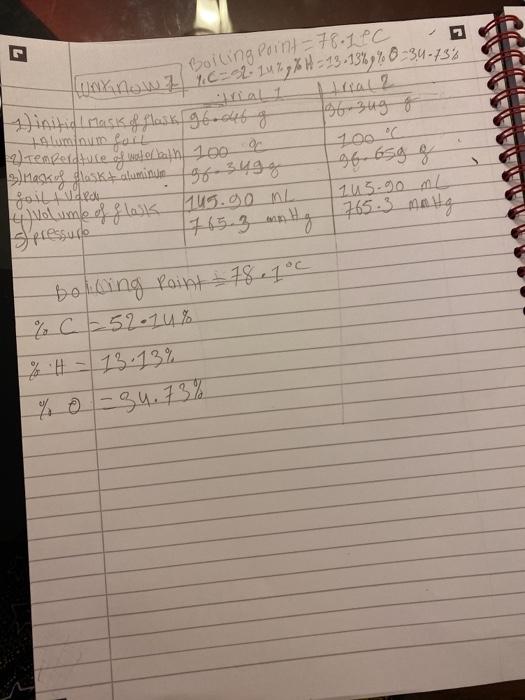 Boiling Point = 78.1°C
unknow 7 % C = 52.14%, % H = 13.13%, % O = 34.73%
trial 1 trial 2
1) initial mask of flask + Aluminum foil 96.046 g 96.349 g
2) Temperature of water bath 100 °C 100 °C
3) Mask of flask + aluminum foil + Vapor 96.349 g 96.659 g
4) Volume of flask 145.90 mL 145.90 mL
5) pressure 765.3 mmHg 765.3 mmHg
boiling Point = 78.1°C
% C = 52.14%
% H = 13.13%
% O = 34.73%